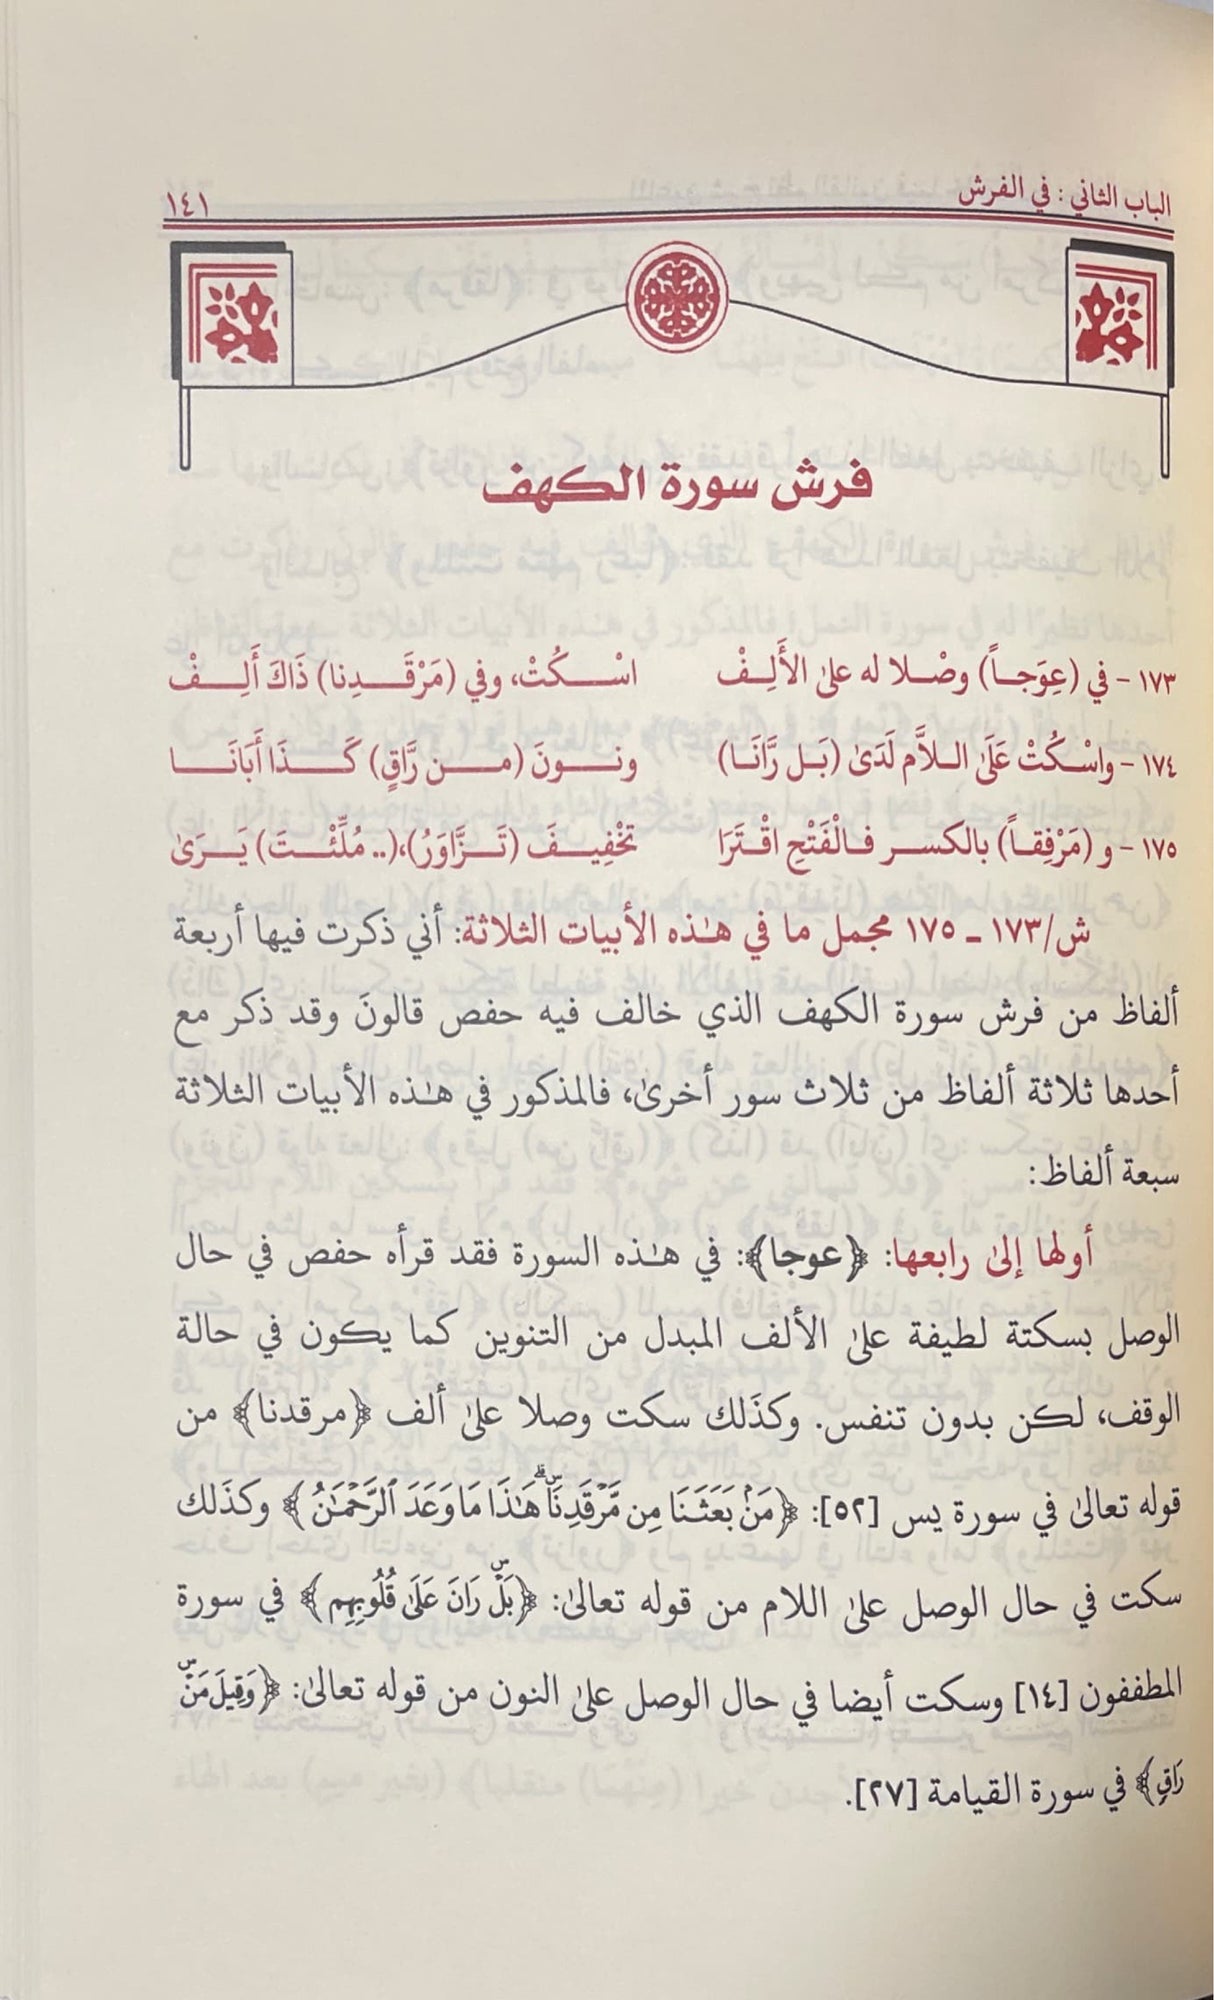 الباب الثاني: في الفرش ١٤١
فرش سورة الكهف
١٧٣ - في (عِوَجاً) وصْلا له علىٰ الأَلِفْ اسْكُتْ، وفي (مَرْقَدِنا) ذَاكَ أَلِفْ
١٧٤ - واسْكُتْ عَلَىٰ اللاَّم لَدَىٰ (بَل رَّانَا) ونونَ (من رَّاقٍ) كَذَا أَبَانَا
١٧٥ - و (مَرْفِقاً) بالكسر فالْفَتْحِ اقْتَرَا تخْفِيفَ (تَزَّاوَرُ)،(.. مُلِّئْتَ) يَرَىٰ
ش/١٧٣ ـ ١٧٥ مجمل ما في هـٰذه الأبيات الثلاثة: أني ذكرت فيها أربعة
ألفاظ من فرش سورة الكهف الذي خالف فيه حفص قالونَ وقد ذكر مع
أحدها ثلاثة ألفاظ من ثلاث سور أخرىٰ، فالمذكور في هـٰذه الأبيات الثلاثة
سبعة ألفاظ:
أولها إلىٰ رابعها: ﴿عوجا﴾: في هـٰذه السورة فقد قرأه حفص في حال
الوصل بسكتة لطيفة علىٰ الألف المبدل من التنوين كما يكون في حالة
الوقف، لكن بدون تنفس. وكذَلك سكت وصلا علىٰ ألف ﴿مرقدنا﴾ من
قوله تعالىٰ في سورة يس [٥٢]: ﴿مَنۢ بَعَثَنَا مِن مَّرْقَدِنَاۜۗ هَـٰذَا مَا وَعَدَ ٱلرَّحْمَـٰنُ﴾ وكذَلك
سكت في حال الوصل علىٰ اللام من قوله تعالىٰ: ﴿بَلْۜ رَانَ عَلَىٰ قُلُوبِهِم﴾ في سورة
المطففون [١٤] وسكت أيضا في حال الوصل علىٰ النون من قوله تعالىٰ: ﴿وَقِيلَ مَنْۜ
رَاقٍ﴾ في سورة القيامة [٢٧].